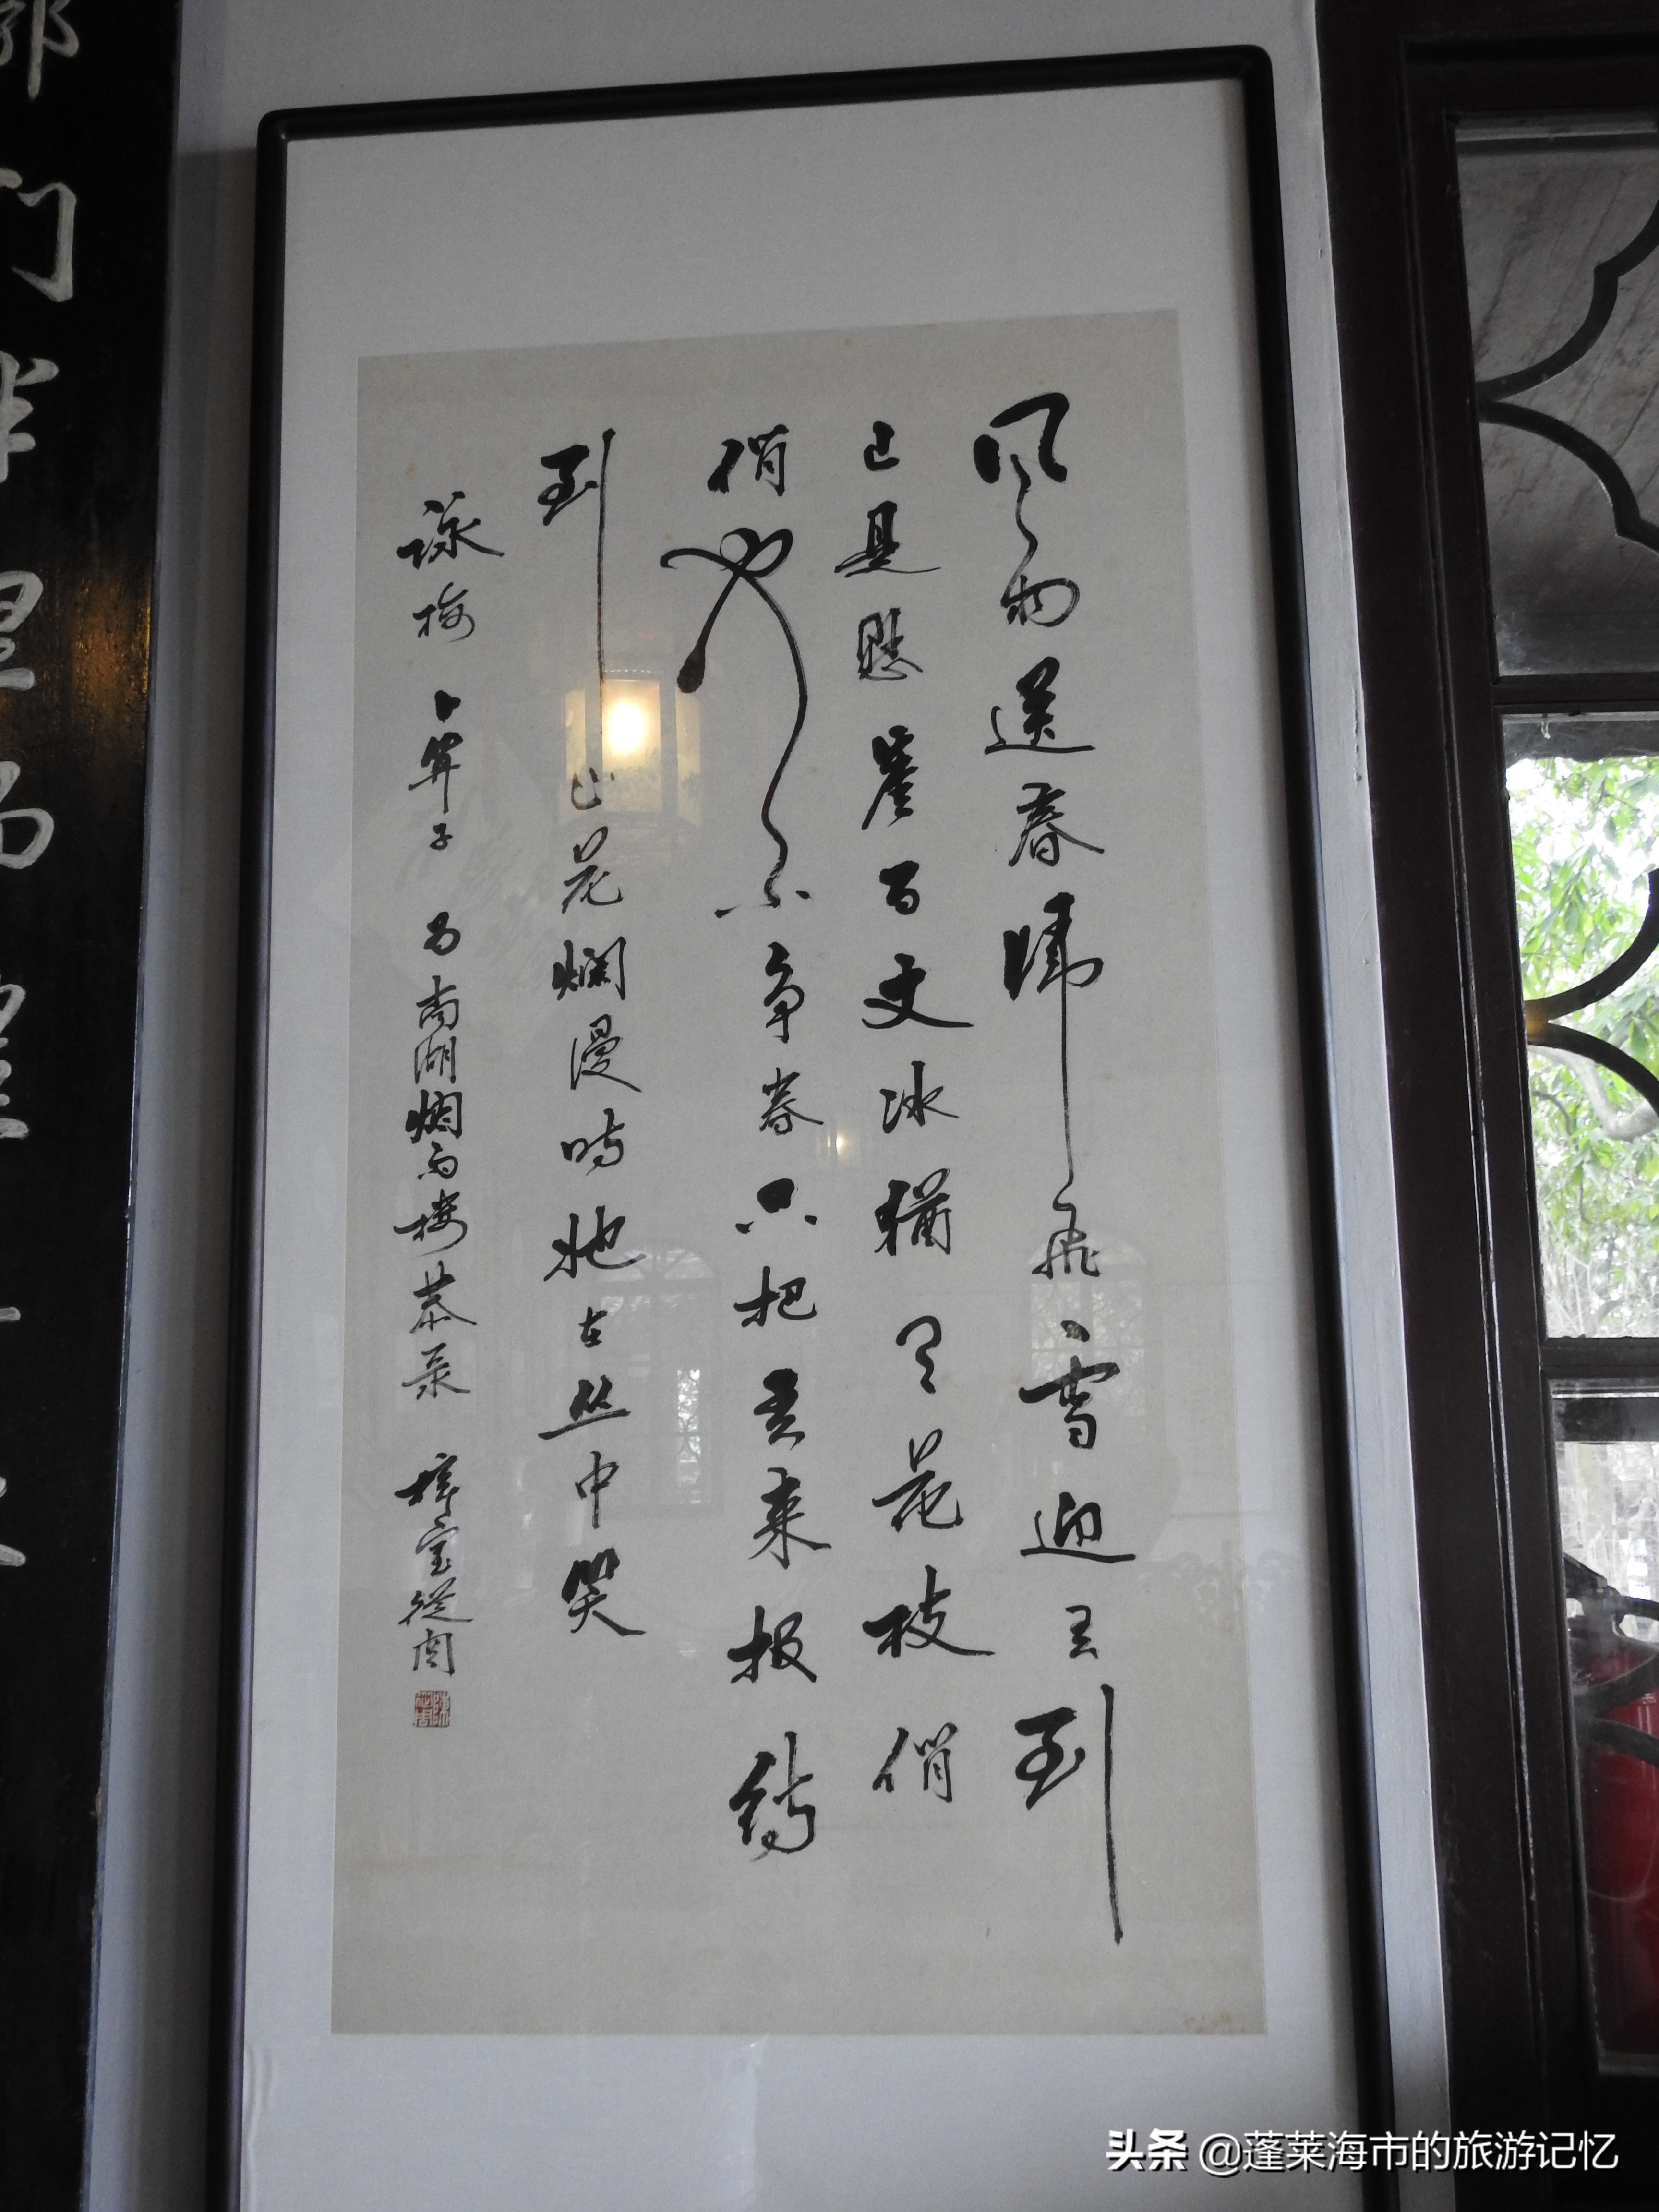 风雨送春歸飛雪迎春到
已是懸崖百丈冰猶有花枝俏
俏也不争春只把春来报待
到山花爛漫時她在丛中笑
詠梅 卜算子 为南湖烟雨楼恭录 梓室從周
头条 @蓬莱海市的旅游记忆